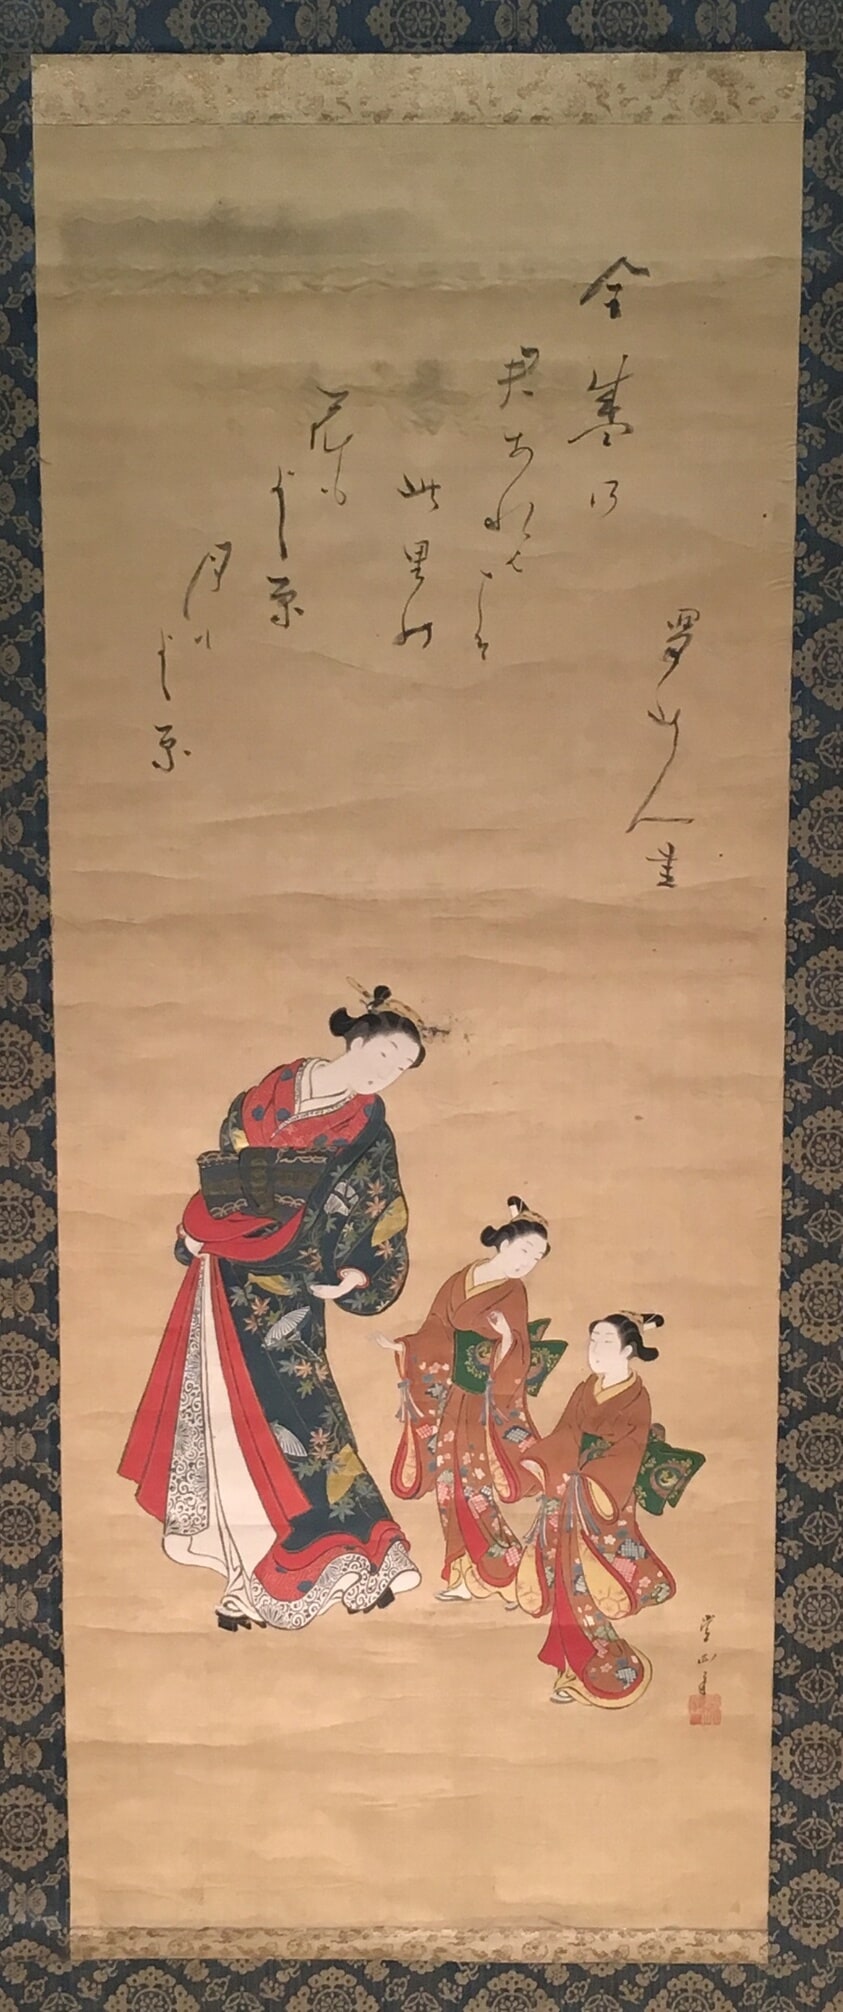 蜀山人書
全盛乃
君あれはこそ
此里の
花も
よし原
月
よし原
常正画